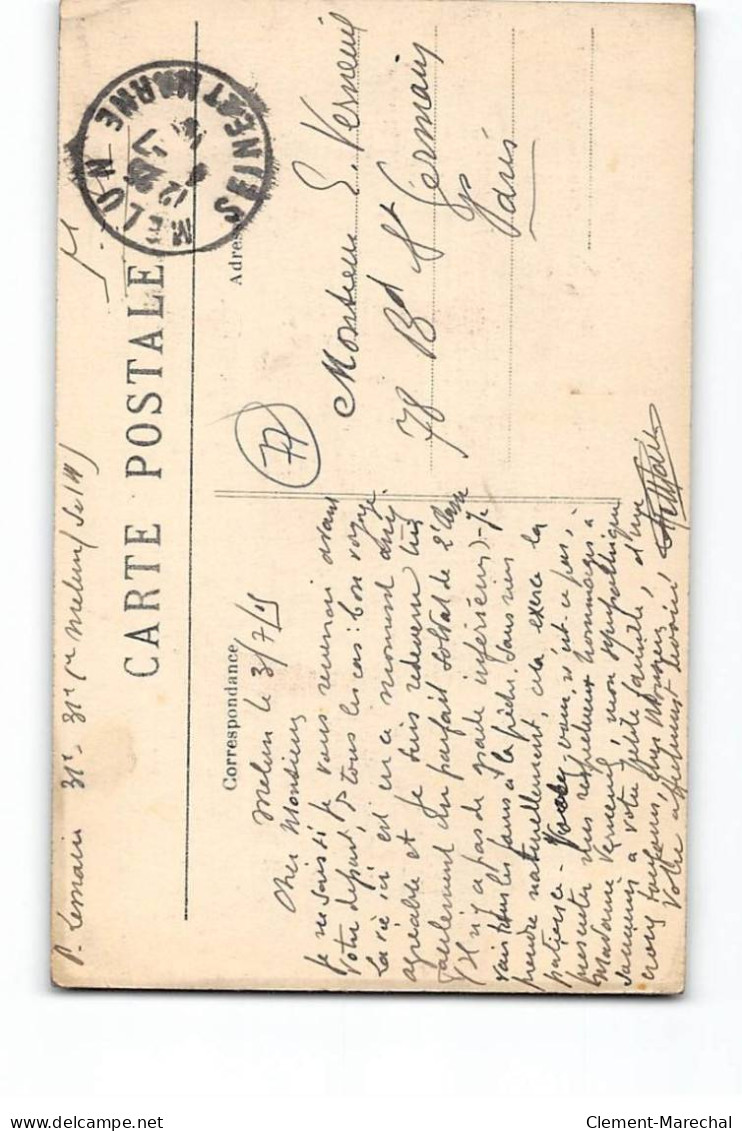 P. Lemain 31e - 31e Cie Melun (S et M)
CARTE POSTALE
MELUN
SEINE-ET-MARNE
12
7
Correspondance
Adresse
Melun le 3/7/15
Cher Monsieur
Je ne sais si je vous reverrai avant
votre départ, en tous les cas : bon voyage.
La vie ici est en ce moment
agréable et je suis redevenu très
facilement un parfait soldat de 2e classe
(Il n'y a pas de grade inférieur) - Je
vais tous les jours à la pêche, sans rien
prendre naturellement, cela exerce la
patience - Vous voudrez, n'est-ce pas,
présenter mes respectueux hommages à
Madame Verneuil, mon sympathique
à votre petite famille, et me
croire toujours, cher Monsieur,
Votre dévoué
77
Monsieur E. Verneuil
78 Bd St Germain
Paris
Clement-Marechal